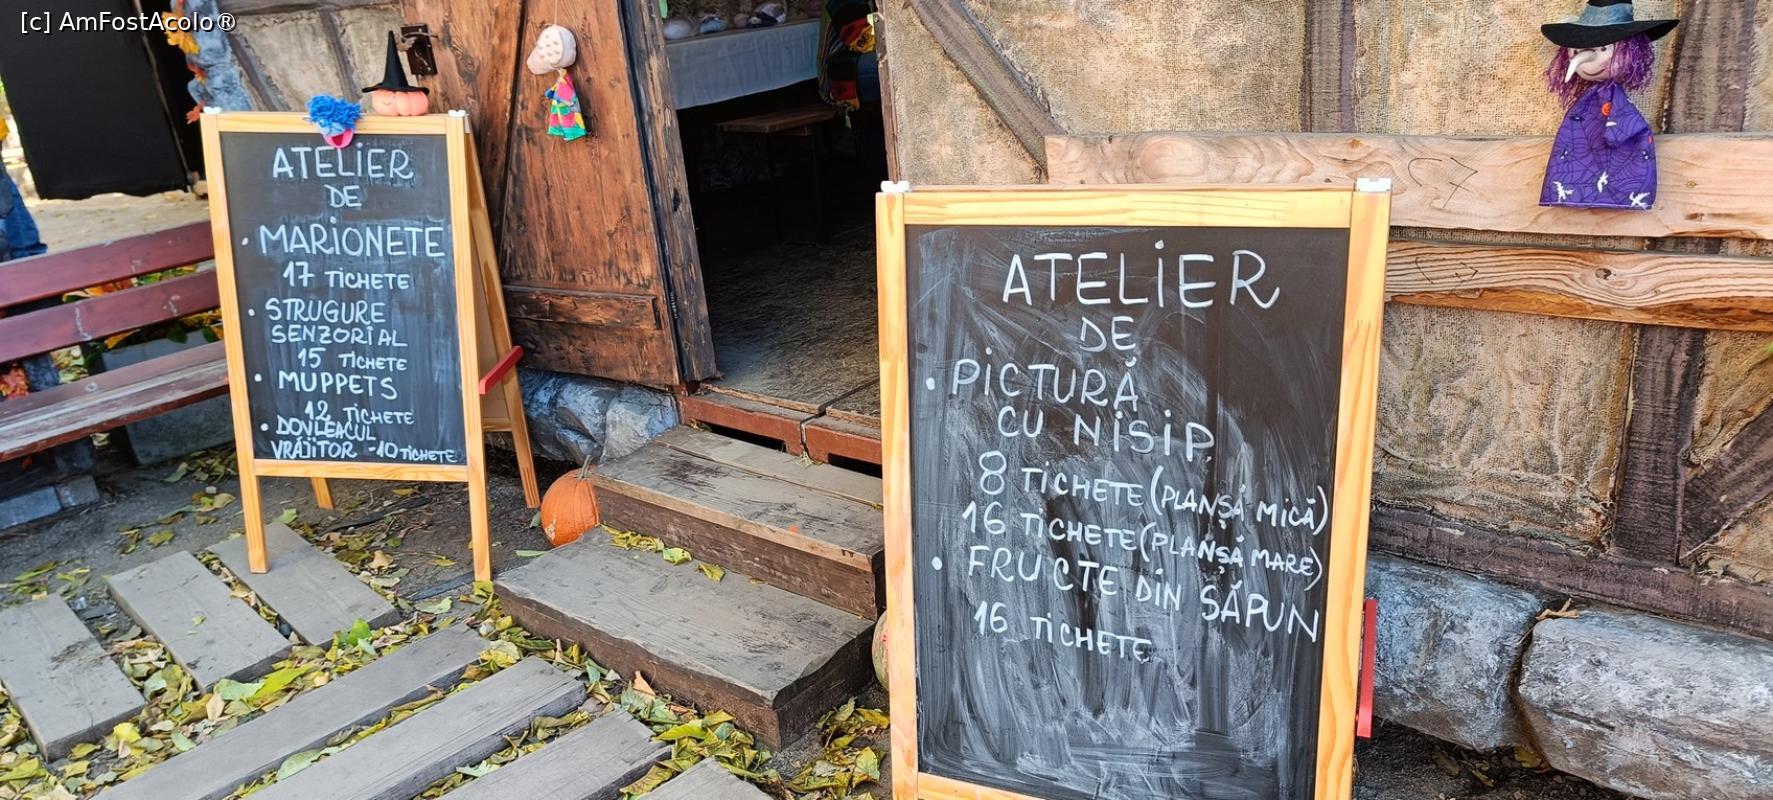 [c] AmFostAcolo®
ATELIER
DE
• MARIONETE
17 TICHETE
• STRUGURE
SENZORIAL
15 TICHETE
• MUPPETS
12 TICHETE
• DOVLEACUL
VRĂJITOR -10 TICHETE
ATELIER
DE
• PICTURĂ
CU NISIP
8 TICHETE (PLANȘĂ MICĂ)
16 TICHETE (PLANȘĂ MARE)
• FRUCTE DIN SĂPUN
16 TICHETE